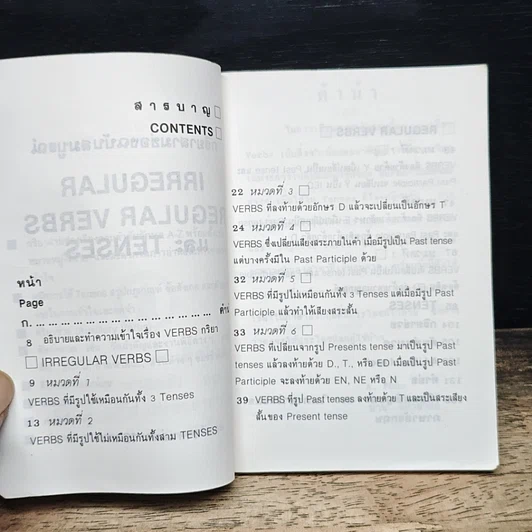 สารบาญ
CONTENTS
หน้า
Page
ก. ... ... ... ... ... ... ... ... ... ... ... ... คำ
8 อธิบายและทำความเข้าใจเรื่อง VERBS กริยา
IRREGULAR VERBS
9 หมวดที่ 1
VERBS ที่มีรูปใช้เหมือนกันทั้ง 3 Tenses
13 หมวดที่ 2
VERBS ที่มีรูปใช้ไม่เหมือนกันทั้งสาม TENSES
22 หมวดที่ 3
VERBS ที่ลงท้ายด้วยอักษร D แล้วจะเปลี่ยนเป็นอักษร T
24 หมวดที่ 4
VERBS ซึ่งเปลี่ยนเสียงสระภายในคำ เมื่อมีรูปเป็น Past tense
แต่บางครั้งมีใน Past Participle ด้วย
32 หมวดที่ 5
VERBS ที่มีรูปไม่เหมือนกันทั้ง 3 Tenses แต่เมื่อมีรูป Past
Participle แล้วทำให้เสียงสระสั้น
33 หมวดที่ 6
VERBS ที่เปลี่ยนจากรูป Presents tense มาเป็นรูป Past
tenses แล้วลงท้ายด้วย D., T., หรือ ED เมื่อเป็นรูป Past
Participle จะลงท้ายด้วย EN, NE หรือ N
39 VERBS ที่รูป Past tenses ลงท้ายด้วย T และเป็นสระเสียง
สั้นของ Present tense